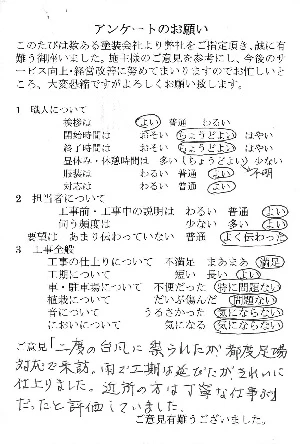 アンケートのお願い
このたびは数ある塗装会社より弊社をご指定頂き、誠に有
難う御座いました。施主様のご意見を参考にし、今後のサ
ービス向上・経営改善に努めてまいりますのでお忙しいと
ころ、大変恐縮ですがよろしくお願い致します。
1 職人について
挨拶は よい 普通 わるい
開始時間は おそい ちょうどよい はやい
終了時間は おそい ちょうどよい はやい
昼休み・休憩時間は 多い ちょうどよい 少ない
服装は わるい 普通 よい 不明
対応は わるい 普通 よい
2 担当者について
工事前・工事中の説明は わるい 普通 よい
伺う頻度は 少ない 多い よい
要望は あまり伝わっていない 普通 よく伝わった
3 工事全般
工事の仕上りについて 不満足 まあまあ 満足
工期について 短い 長い よい
車・駐車場について 不便だった 特に問題ない
植栽について だいぶ傷んだ 問題ない
音について うるさかった 気にならない
においについて 気になる 気にならない
ご意見「二度の台風に祟られたが都度足場
対応で来訪。雨で工期は延びたがきれいに
仕上りました。近所の方は丁寧な仕事
だったと評価していました。
ご意見有難うございました。